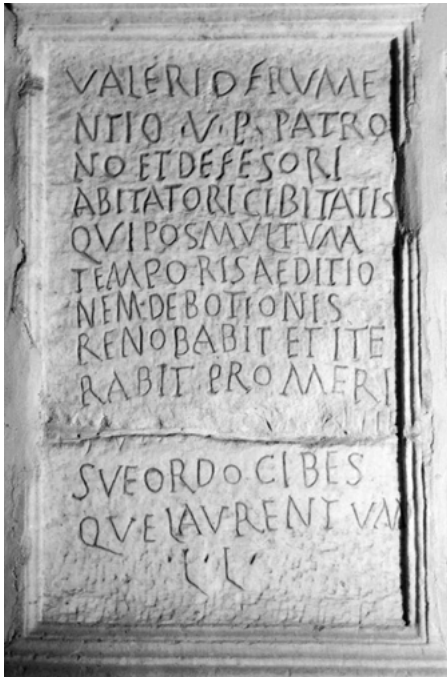 VALERIO FRVME
NTIO ·V·P· PATRO
NO ET DEFESORI
ABITATORI CIBITATIS
QVI POS MVLTVM
TEMPORIS AEDITIO
NEM·DEBOTIONIS
RENOBABIT ET ITE
RABIT PRO MERI
SVE ORDO CIBES
QVE LAVRENTVM
'L'L'